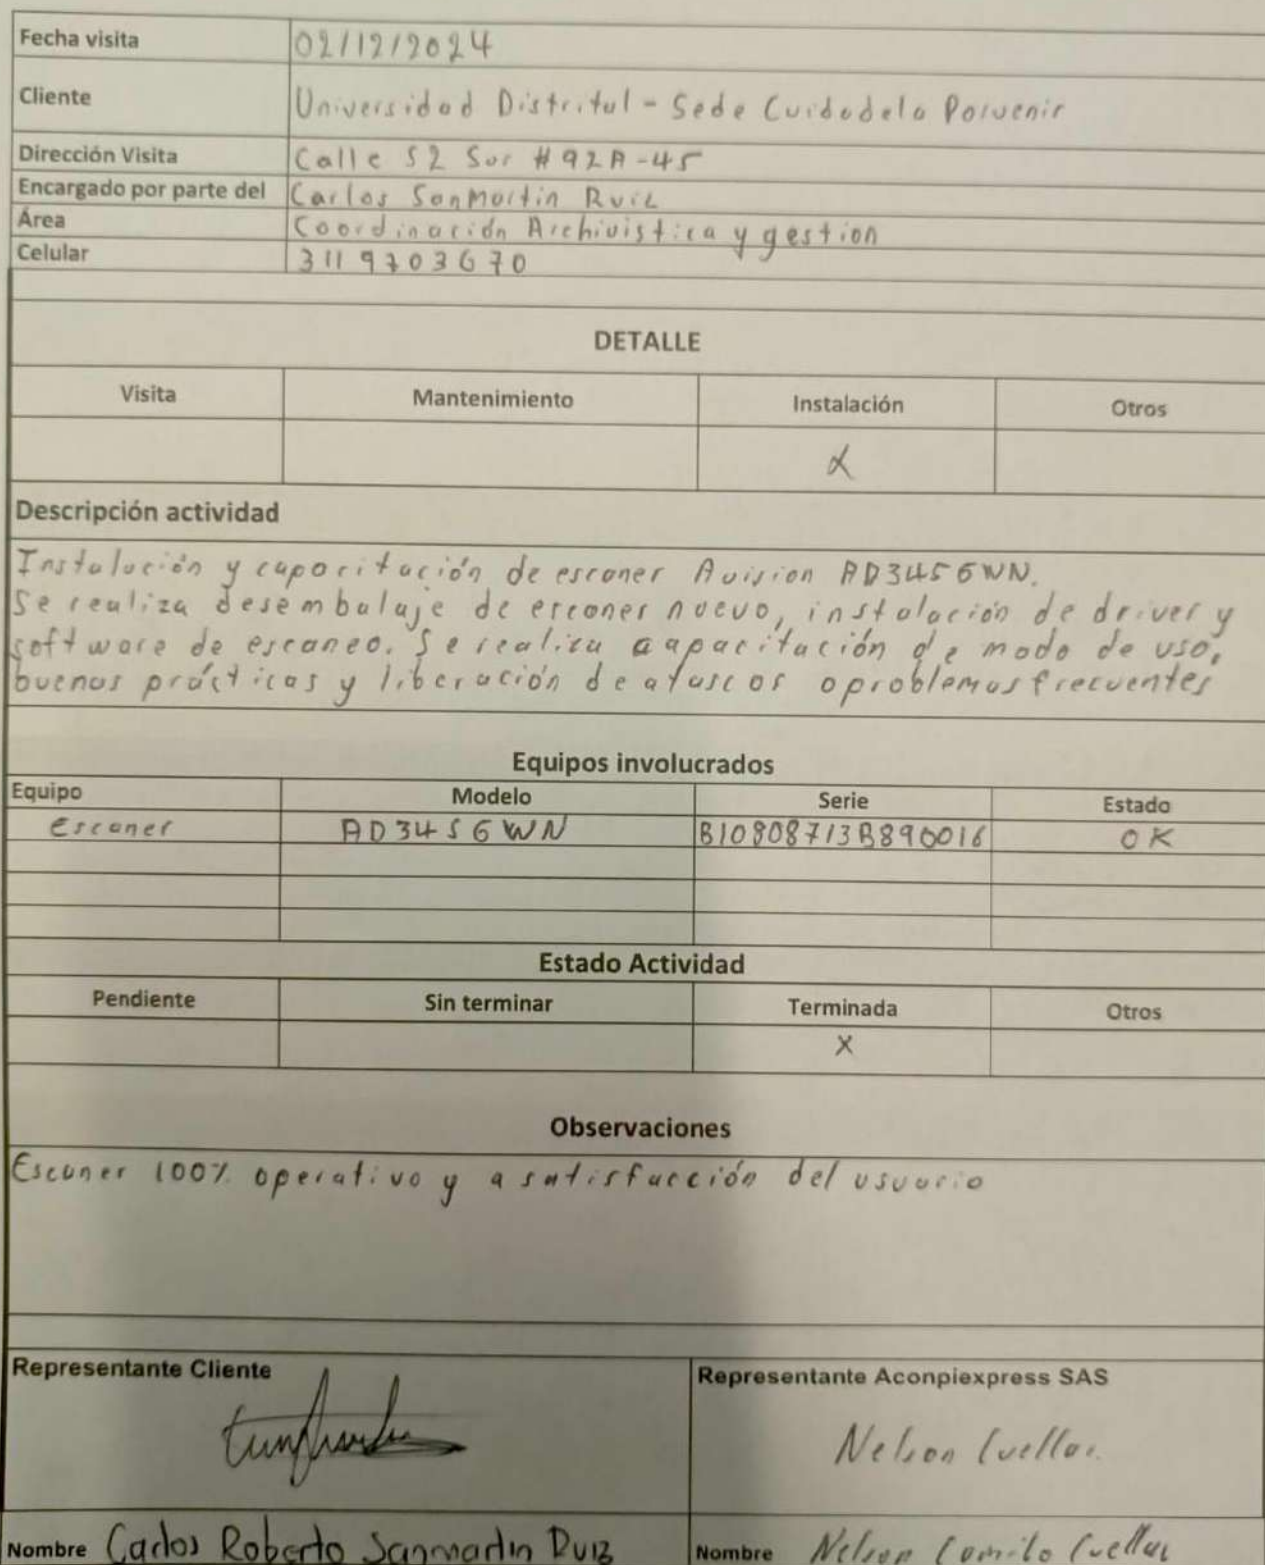 Fecha visita 02/12/2024
Cliente Universidad Distrital - Sede Cuidadela Porvenir
Dirección Visita Calle 52 Sur # 92A-45
Encargado por parte del Carlos SanMartin Ruiz
Área Coordinación Archivistica y gestion
Celular 3119703670
DETALLE
Visita Mantenimiento Instalación Otros
X
Descripción actividad
Instalación y capacitación de escaner Avision AD3456WN.
Se realiza desembalaje de escaner nuevo, instalación de driver y
software de escaneo. Se realiza capacitación de modo de uso,
buenas prácticas y liberación de atascos o problemas frecuentes
Equipos involucrados
Equipo Modelo Serie Estado
Escaner AD3456WN B10808713B890016 OK
Estado Actividad
Pendiente Sin terminar Terminada Otros
X
Observaciones
Escaner 100% operativo y a satisfacción del usuario
Representante Cliente Representante Aconpiexpress SAS
Nelson Cuellar
Nombre Carlos Roberto Sanmartin Ruiz Nombre Nelson Camilo Cuellar